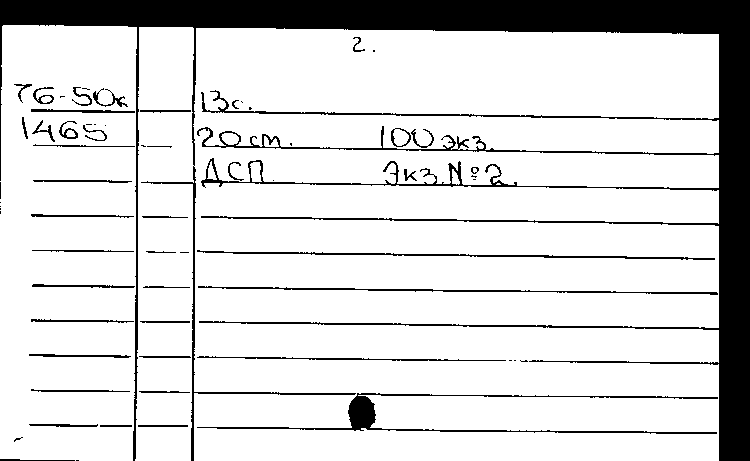 2.
76-50к 13с.
1465 20 cm. 100 экз.
ДСП Экз. № 2.